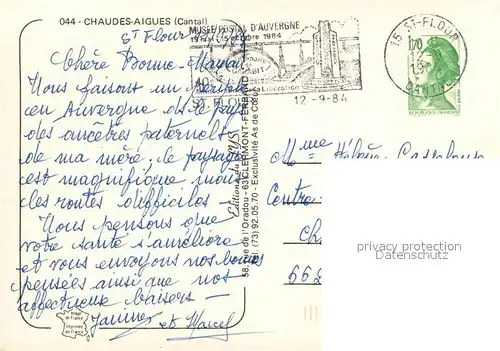 044 - CHAUDES-AIGUES (Cantal)
St Flour
Chère Bonne-Maman
Nous faisons un périple
en Auvergne dans le pays
des ancêtres paternels
de ma mère; le paysage
est magnifique mais
les routes difficiles -
Nous pensons que
votre santé s'améliore
et vous envoyons nos bonnes
pensées ainsi que nos
affectueux baisers -
Janine et Marcel
Image de France
Imprimé en France
Editions du LYS
58, rue de l'Oradou - 63 CLERMONT-FERRAND
Tél. (73) 92.05.70 - Exclusivité As de Cœur
MUSEE POSTAL D'AUVERGNE
1984
40
Libération
ST FLOUR
12-9-84
15 ST-FLOUR
CANTAL
1,70
REPUBLIQUE FRANÇAISE
Mme
Centre
Ch
662
privacy protection
privacy protection